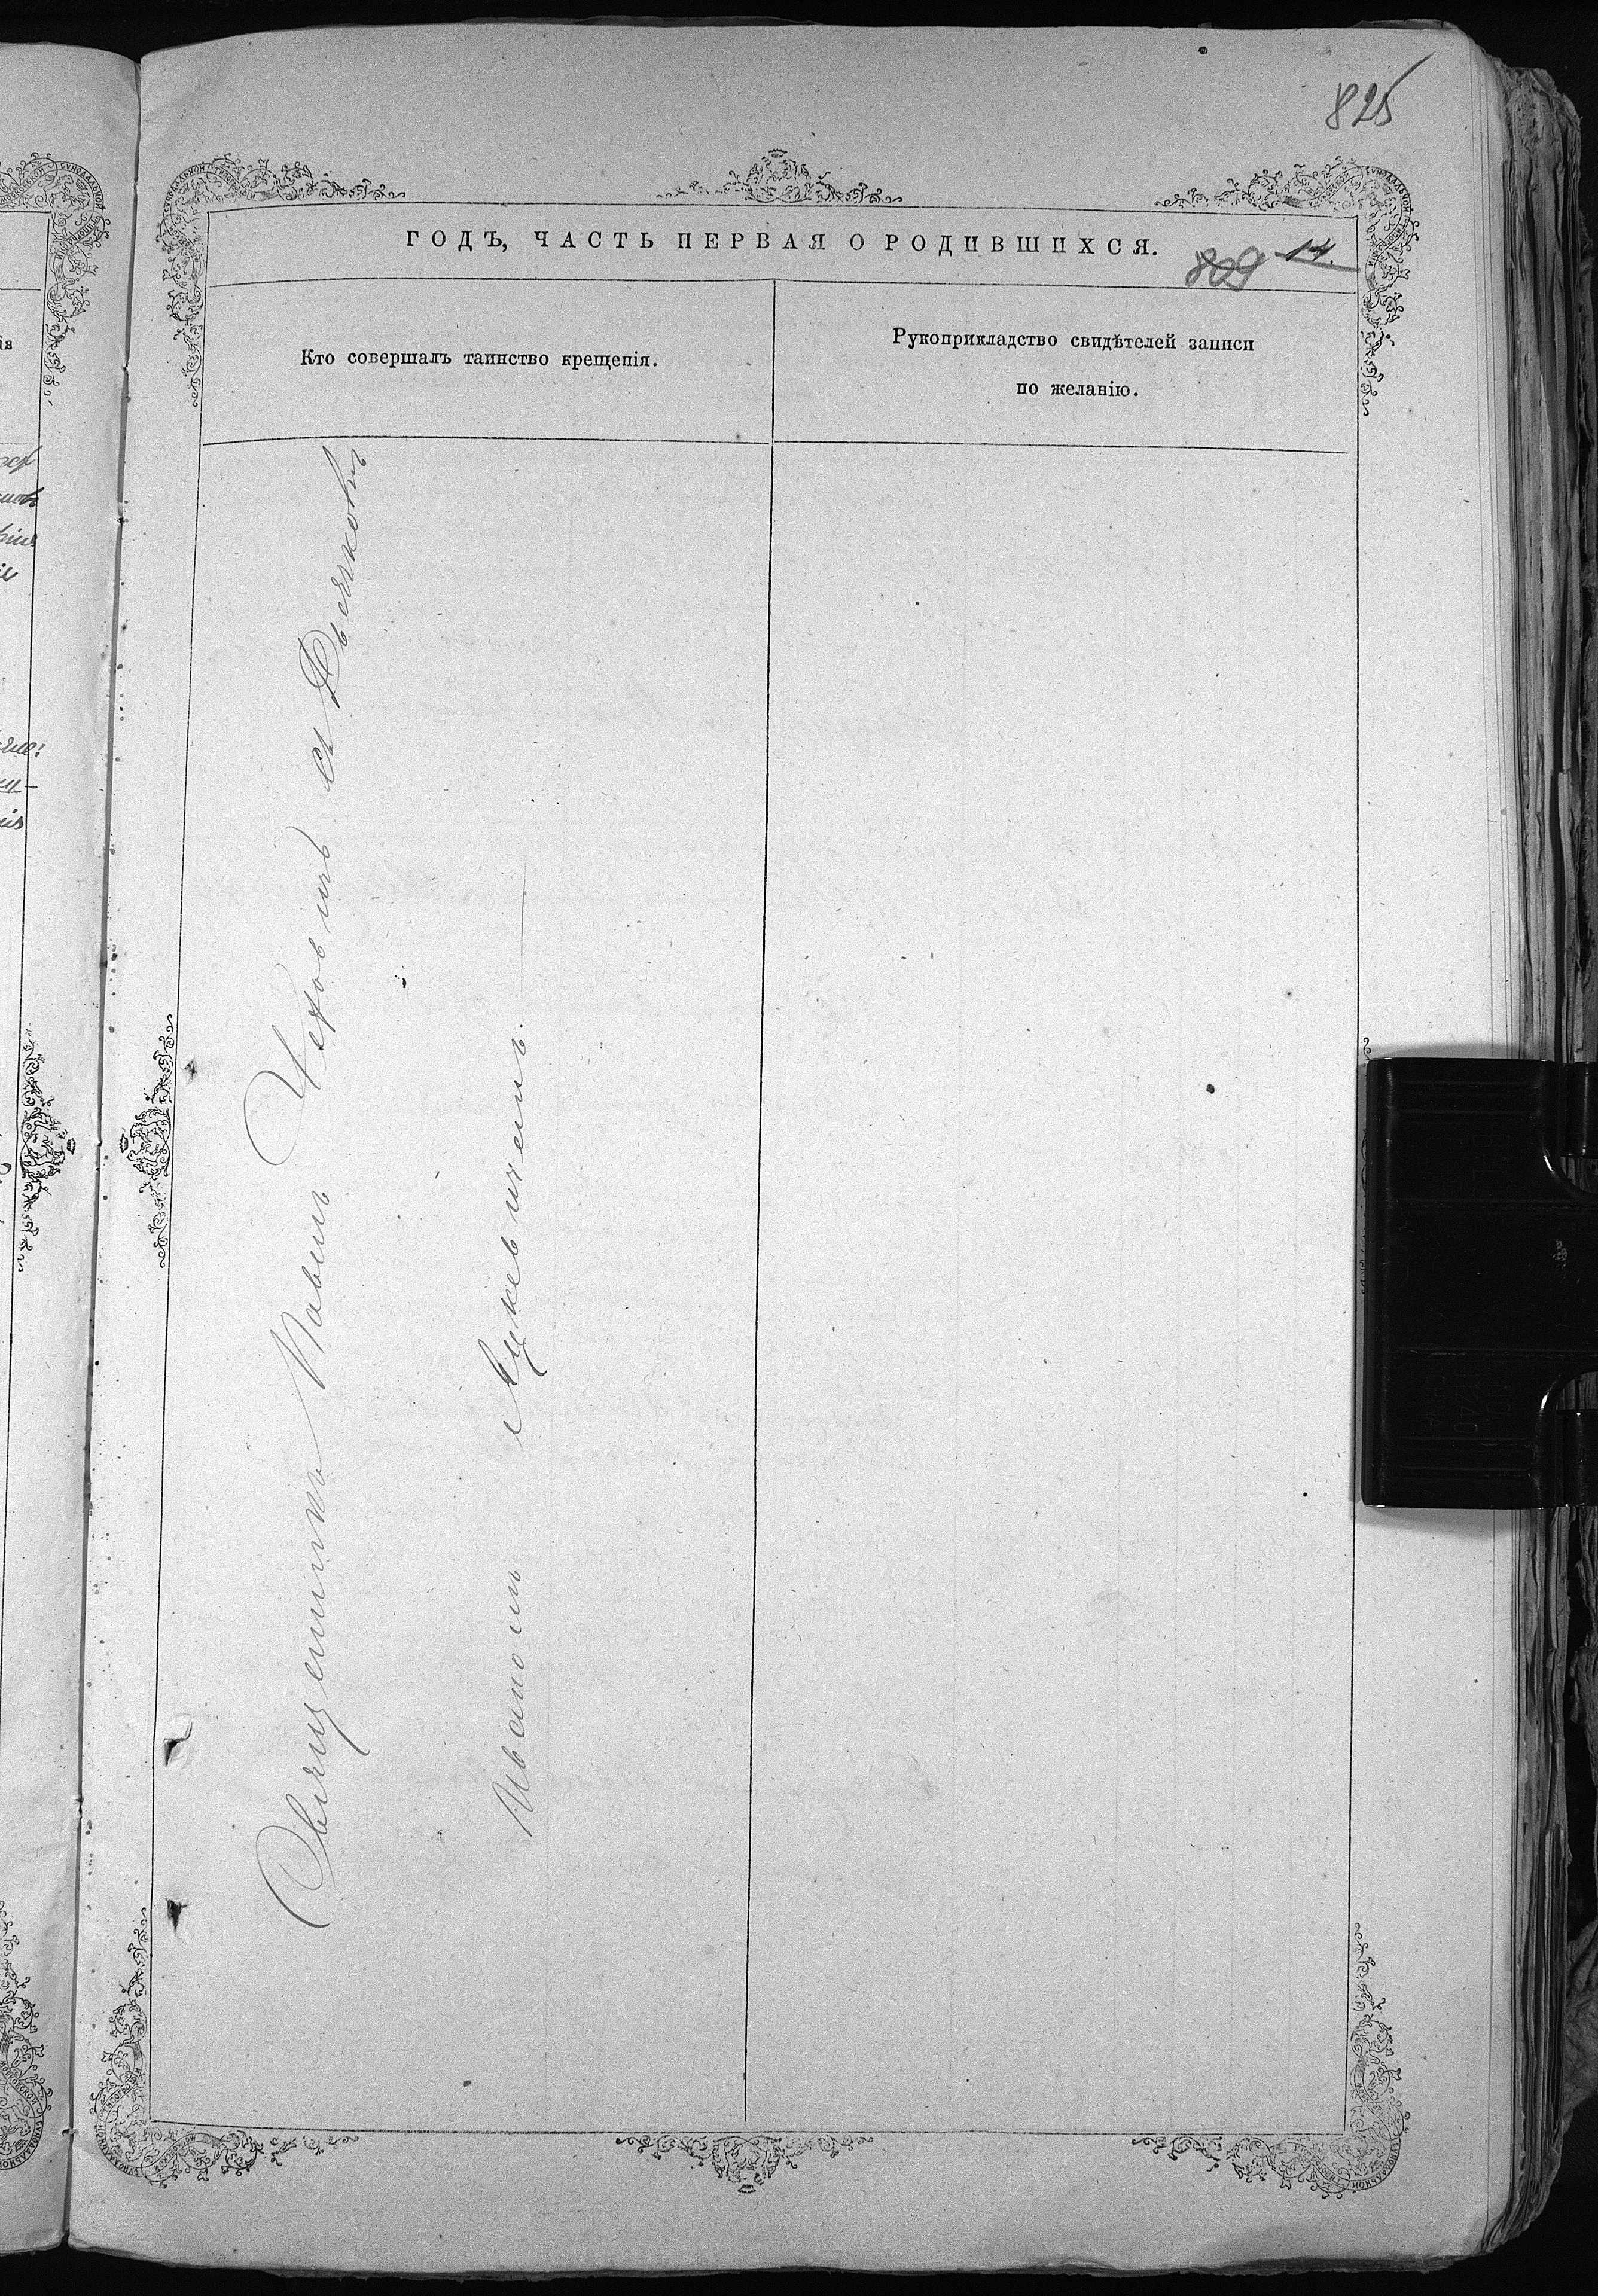 825
ГОДЪ, ЧАСТЬ ПЕРВАЯ О РОДИВШИХСЯ.
809 14.
Кто совершалъ таинство крещенія.
Рукоприкладство свидѣтелей записи
по желанію.
Священникъ Павелъ Чеховичъ съ Дьячкомъ
Иваномъ Луцкевичемъ.